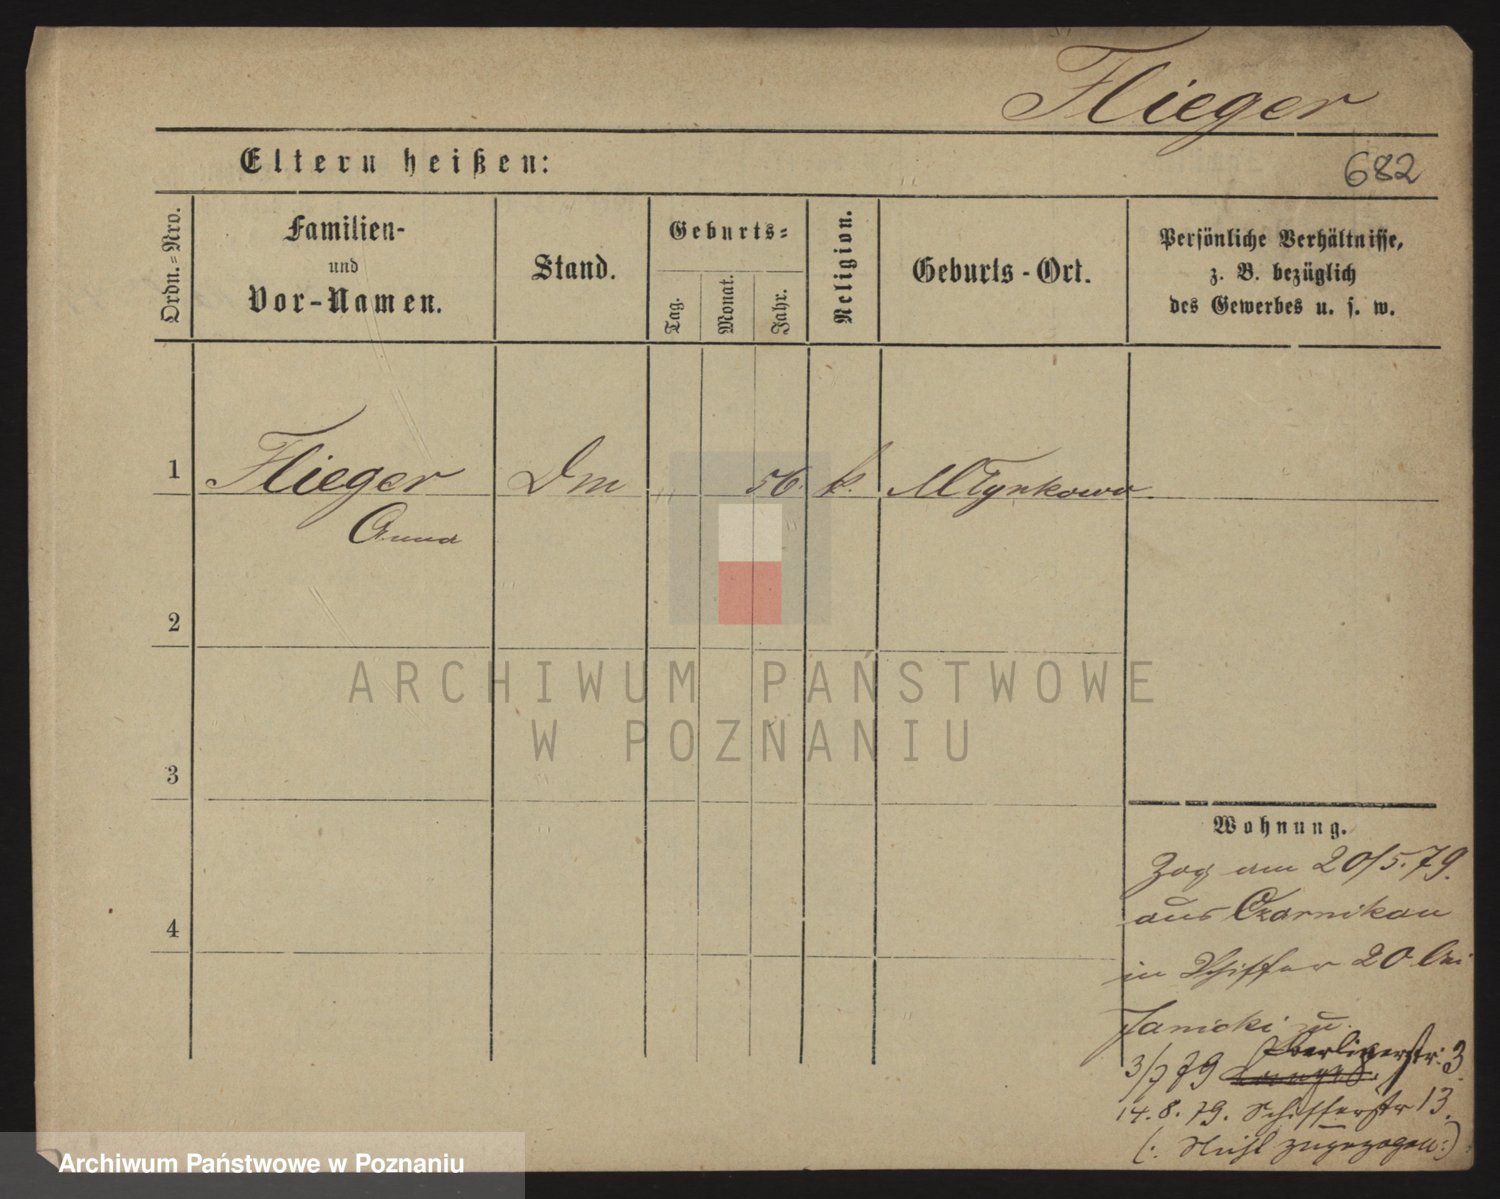 Flieger
Eltern heißen:
682
Ordn.=Nro.
Familien-
und
Vor-Namen.
Stand.
Geburts=
Tag.
Monat.
Jahr.
Religion.
Geburts-Ort.
Persönliche Verhältnisse,
z. B. bezüglich
des Gewerbes u. s. w.
1
Flieger
Dm
56.
k.
Młynkowo
Anna
2
3
4
Wohnung.
Zog am 20/5.79.
aus Czarnikau
in Schiffer 20 bei
Janicki u.
3/7 79 Berlinerstr. 3.
14.8.79. Schifferstr 13.
(: Nicht zugezogen :)
ARCHIWUM PAŃSTWOWE
W POZNANIU
Archiwum Państwowe w Poznaniu